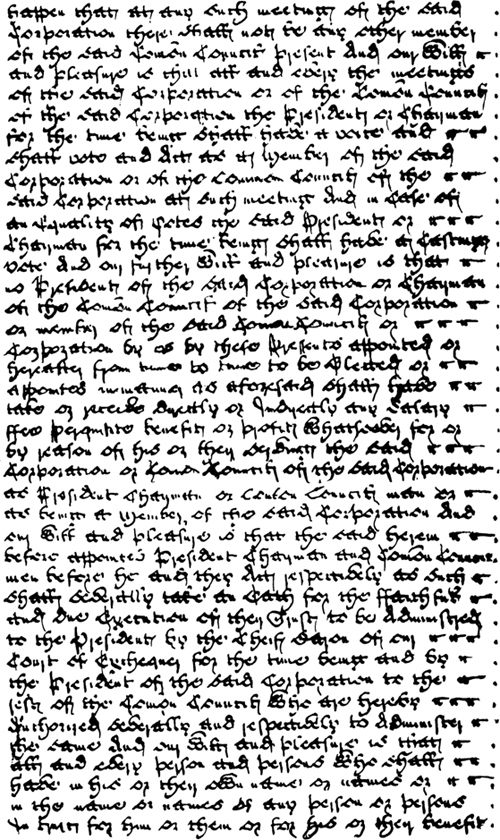 happen that att any such meeting of the said
Corporation there shall not be any other member
of the said Comon Councill present And our Will
and pleasure is that att and every the meetings
of the said Corporation or of the Comon Councill
of the said Corporation the President or Chairman
for the time being shall have a vote and
shall vote and Act as a Member of the said
Corporation or of the Common Councill of the
said Corporation at such meeting And in Case of
an Equality of Votes the said President or
Chairman for the time being shall have a Casting
vote And our further Will and pleasure is that
no President of the said Corporation or Chairman
of the Comon Councill of the said Corporation
or member of the said Comon Councill or
Corporation by us by these Presents appointed or
hereafter from time to time to be Elected or
appointed in manner as aforesaid shall have
take or receive directly or Indirectly any Salary
ffee perquisite benefitt or profitt Whatsoever for or
by reason of his or their serving the said
Corporation or Comon Councill of the said Corporation
as President Chairman or Comon Councill man or
as being a Member of the said Corporation And
our Will and pleasure is that the said herein
before appointed President Chairman and Comon Councill
men before he and they Act respectively as such
shall severally take an Oath for the ffaithfull
and due Execution of their Trust to be Administred
to the President by the Cheif Baron of our
Court of Exchequer for the time being and by
the President of the said Corporation to the
rest of the Comon Councill Who are hereby
Authorised severally and respectively to Administer
the same And our Will and pleasure is that
all and every person and persons Who shall
have in his or their own name or names or
in the name or names of any person or persons
in trust for him or them or for his or their benefit